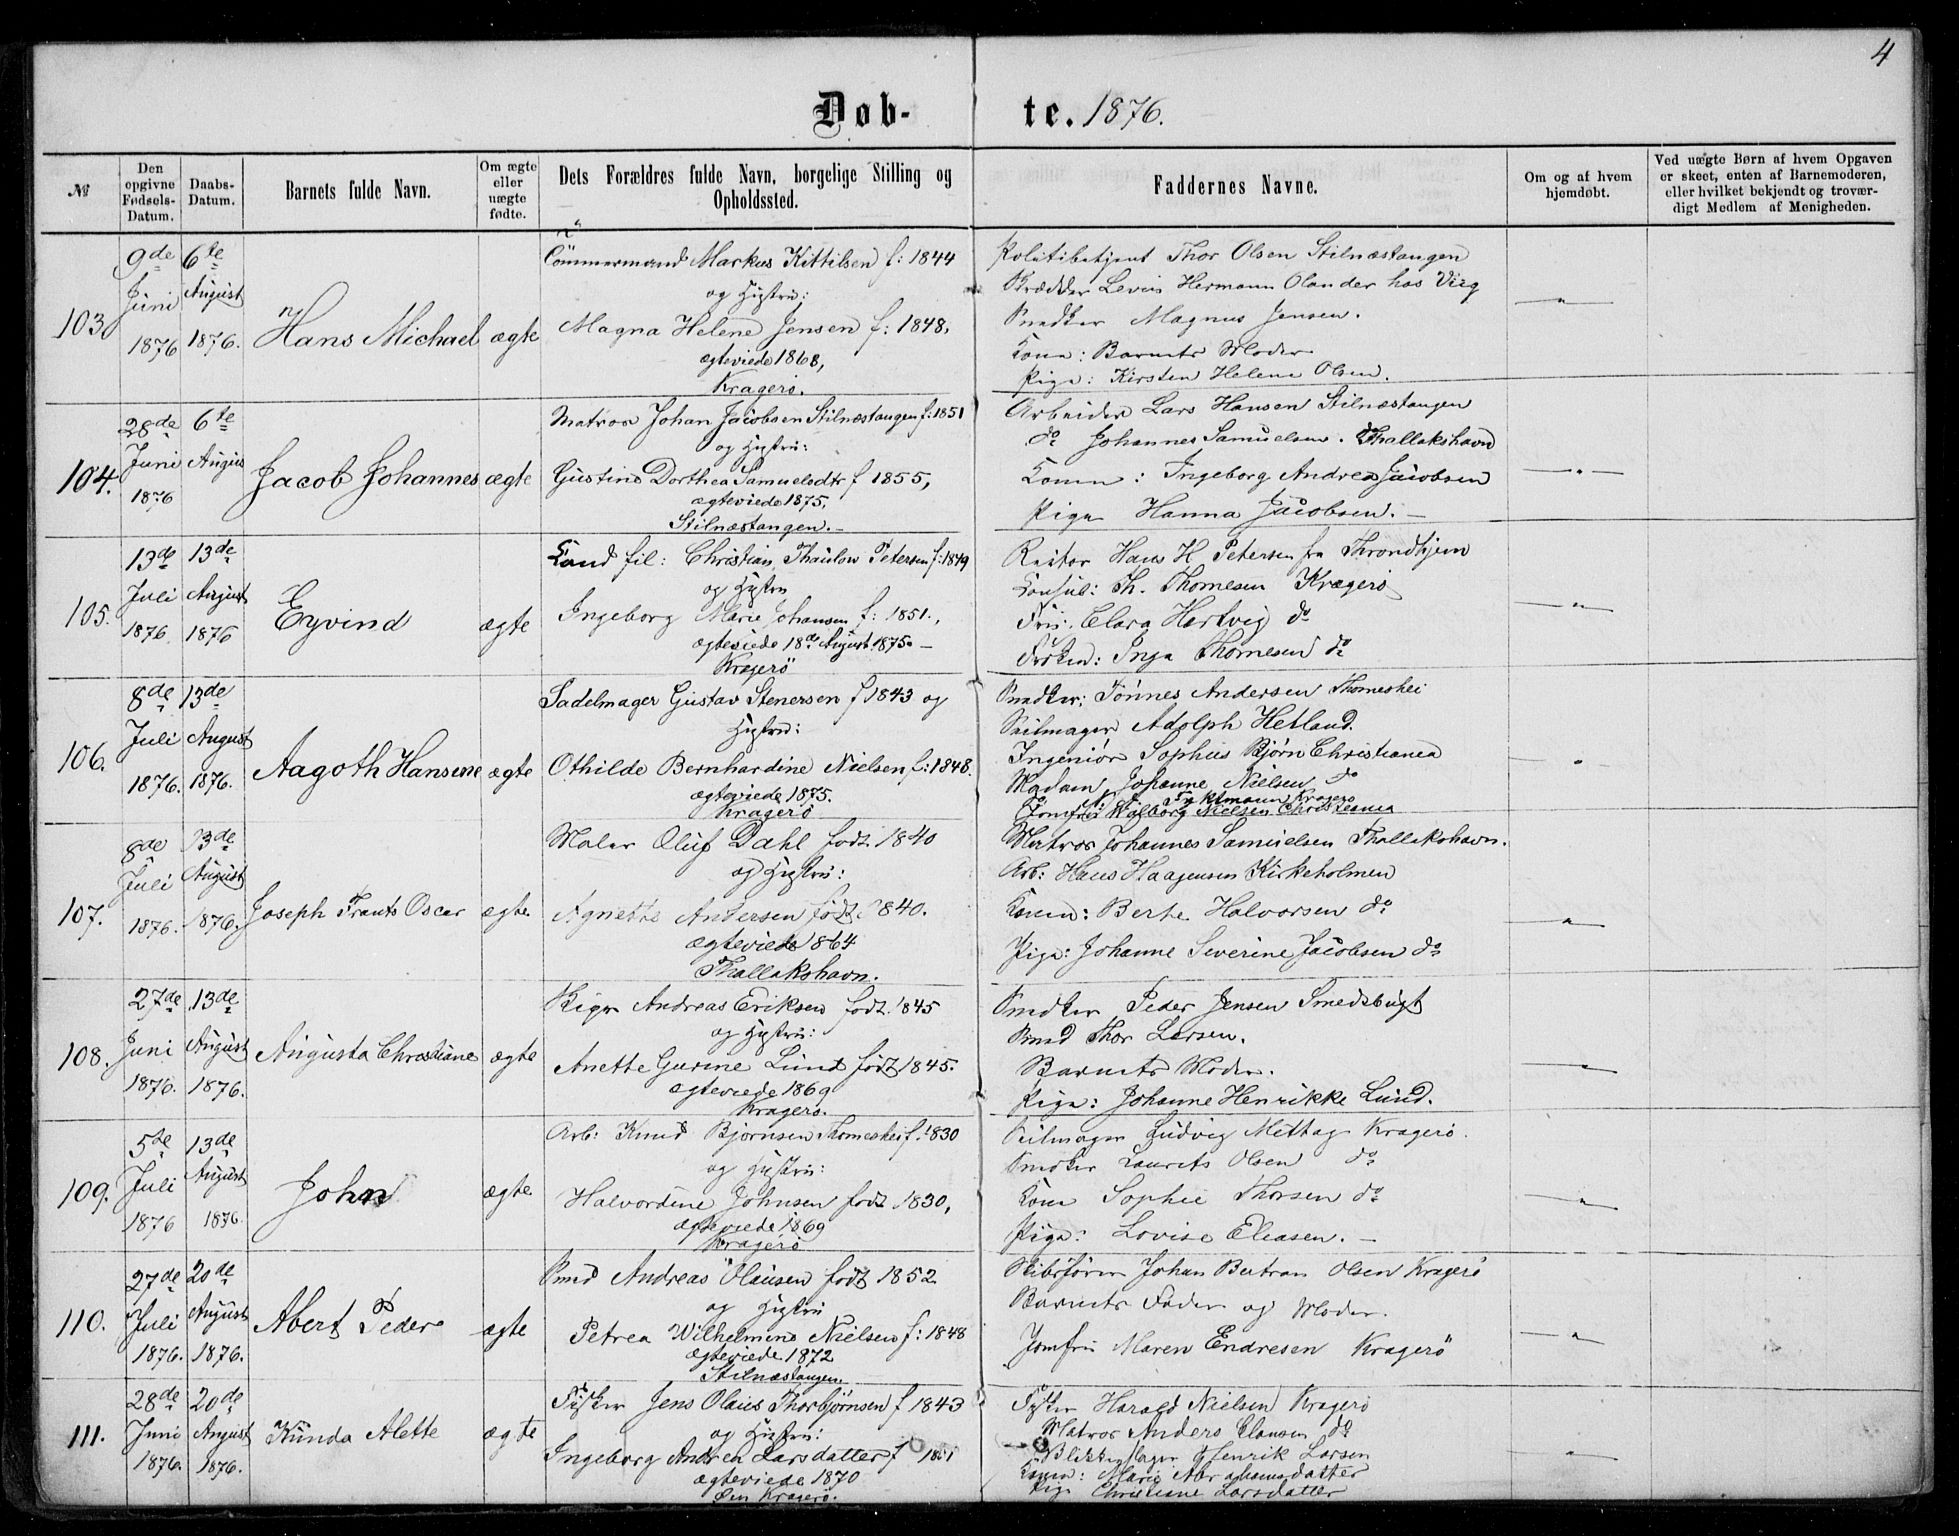 4
Døb-te. 1876.
№
Den opgivne Fødsels-Datum.
Daabs-Datum.
Barnets fulde Navn.
Om ægte eller uægte fødte.
Dets Forældres fulde Navn, borgelige Stilling og Opholdssted.
Faddernes Navne.
Om og af hvem hjemdøbt.
Ved uægte Børn af hvem Opgaven er skeet, enten af Barnemoderen, eller hvilket bekjendt og troværdigt Medlem af Menigheden.
103.
9de Juni 1876
6te August 1876.
Hans Michael
ægte
Tømmermand Markus Kittilsen f: 1844
og Hustru:
Magna Helene Jensen f: 1848,
ægteviede 1868,
Kragerö.
Politibetjent Thor Olsen Stilnæstangen
Skrædder Levin Hermann Olander hos Virg
Snedker Magnus Jensen.
Kone: Barnets Moder
Pige: Kirsten Helene Olsen.
104.
28de Juni 1876
6te August
Jacob Johannes
ægte
Matros Johan Jacobsen Stilnæstangen f: 1851
og Hustru:
Gustine Dorthea Samuelsdtr f 1855,
ægteviede 1875,
Stilnæstangen.
Arbeider Lars Hansen Stilnæstangen
do Johannes Samuelsen. Thallakshavn
Konen: Ingeborg Andrea Jacobsen
Pige Hanna Jacobsen.
105.
13de Juli 1876
13de August 1876
Eyvind
ægte
Cand fil: Christian Thaulow Petersen f: 1849
og Hustru
Ingeborg Marie Johansen f: 1851.,
ægteviede 18de August 1875.
Kragerö
Rektor Hans H Petersen fra Throndhjem
Konsul: Th. Thomesen Kragerö
Fru: Clara Hartvig do
Frøken: Inga Thomesen do
106.
8de Juli 1876.
13de August 1876.
Aagoth Hansine
ægte
Sadelmager Gustav Stenersen f 1843 og
Hustru:
Othilde Bernhardine Nielsen f: 1848.
ægteviede 1875.
Kragerö
Snedker: Tönnes Andersen Thomeshei
Seilmager Adolph Hetland.
Ingeniør Sophus Bjørn Christiania
Madam Johanne Nielsen do
Kragerö
Jomfru Walborg Nielsen Christiania
107.
8de Juli 1876.
13de August 1876.
Joseph Frants Oscar
ægte
Maler Oluf Dahl født 1840
og Hustru:
Agnethe Andersen født 1840.
ægteviede 1864
Thallakshavn.
Matros Johannes Samuelsen Thallakshavn.
Arb: Hans Haagensen Kirkeholmen
Konen: Berte Halvorsen do
Pige: Johanne Severine Jacobsen do
108.
27de Juni 1876.
13de August 1876.
Augusta Christiane
ægte
Andreas Eriksen født 1845
og Hustru:
Anette Gurine Lund født 1845.
ægteviede 1869
Kragerö.
Snedker Peder Jensen Smedsbugt
Smed Thor Larsen.
Barnets Moder.
Pige: Johanne Henrikke Lund.
109.
5te Juli 1876
13de August 1876.
John
ægte
Arb: Knud Bjørnsen Thomeshei f. 1830
og Hustru:
Halvordine Johnsen født 1830,
ægteviede 1869
Kragerö
Seilmager Ludvig Mettag Kragerö.
Snedker Laurits Olsen do
Kone Sophie Thorsen do
Pige: Lovise Eliasen.
110.
27de Juli 1876.
20de August 1876.
Abert Peder
ægte
Smed Andreas Olausen født 1852
og Hustru
Petrea Wilhelmine Nielsen f: 1848
ægteviede 1872
Stilnæstangen.
Skibsfører Johan Bertran Olsen Kragerö
Barnets Fader og Moder.
Jomfru Maren Endresen Kragerö
111.
28de Juni 1876.
20de August 1876.
Kunda Alette
ægte
Fisker Jens Olaus Thorbjørnsen f 1843
og Hustru:
Ingeborg Andrea Larsdatter f 1851
ægteviede 1870
Øen Kragerö.
Fisker Harald Nielsen Kragerö
Matros Anders Clausen do
Blikkenslager Henrik Larsen
Konen: Marie Abrahamsdatter
Pige Christiane Larsdatter